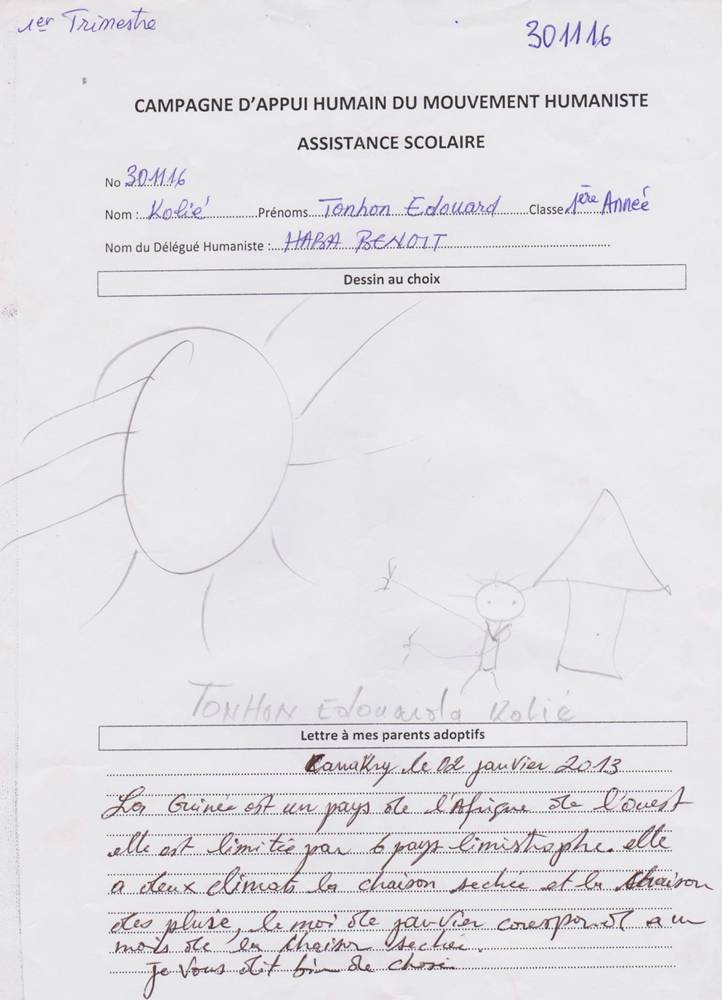 1er Trimestre
301116
CAMPAGNE D'APPUI HUMAIN DU MOUVEMENT HUMANISTE
ASSISTANCE SCOLAIRE
No 301116
Nom : Kolié Prénoms Tonhon Edouard Classe 1ère Année
Nom du Délégué Humaniste : HABA BENOIT
Dessin au choix
TONHON Edouard Kolié
Lettre à mes parents adoptifs
Conakry le 02 janvier 2013
La Guinée est un pays de l'Afrique de l'ouest
elle est limitée par 6 pays limistrophe. elle
a deux climats la chaison sechée et la chaison
des pluse, le moi de janvier corespond a un
mois de la chaison sechée.
je vous dit bien de chose